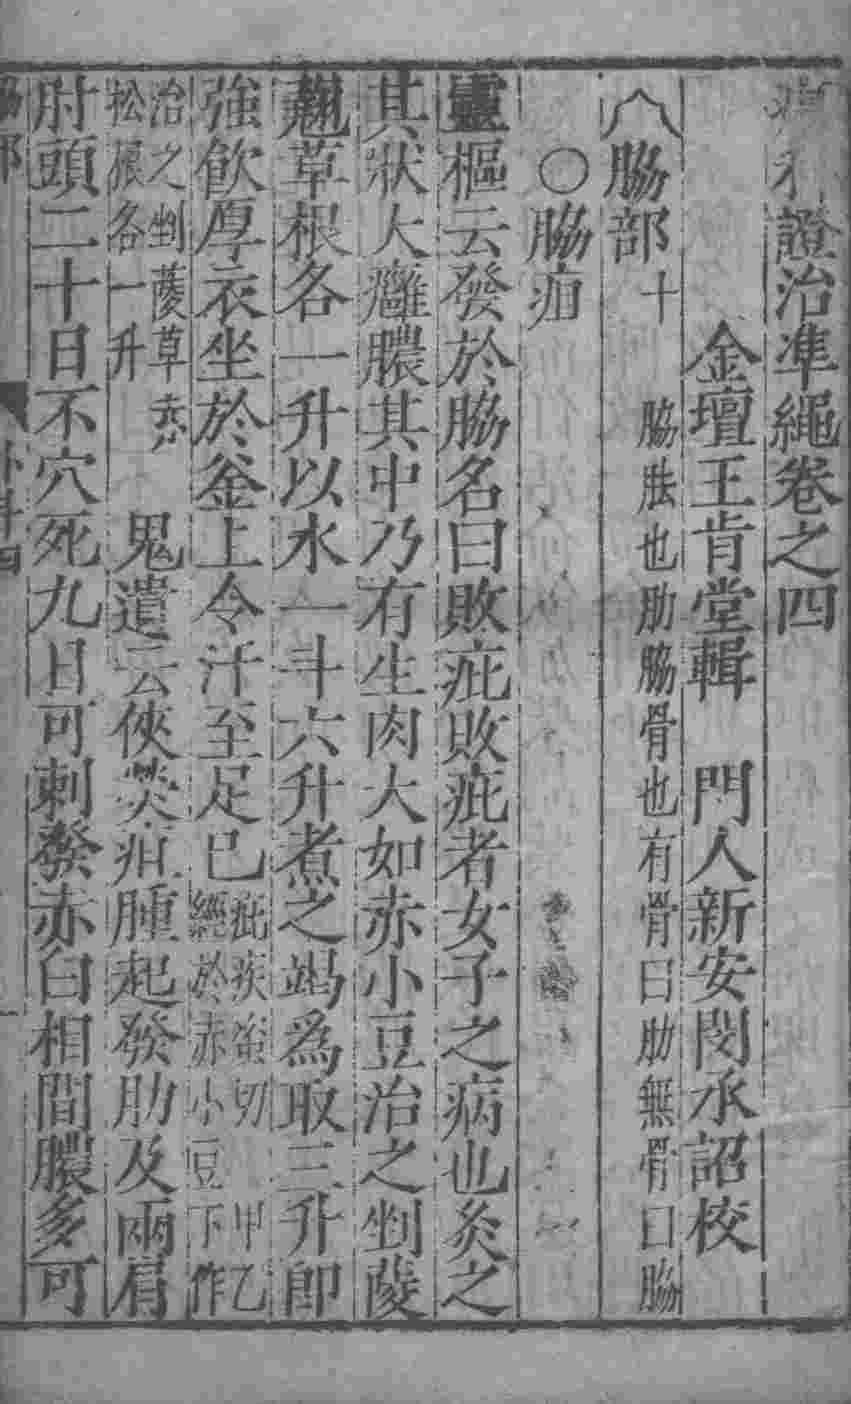 證治準繩卷之四
金壇王肯堂輯　門人新安閔承詔校
脇部十　脇胠也肋脇骨也有骨曰肋無骨曰脇
○脇疽
靈樞云發於脇名曰敗疵敗疵者女子之病也灸之
其狀大癰膿其中乃有生肉大如赤小豆治之剉䔖
翹草根各一升以水一斗六升煮之竭爲取三升即
強飲厚衣坐於釜上令汗至足已疵疾資切　甲乙
經於赤小豆下作
治之剉䔖草赤
松根各一升　鬼遺云俠熒疽腫起發肋及兩肩
肘頭二十日不穴死九日可刺發赤白相間膿多可
脇部　外科四　一